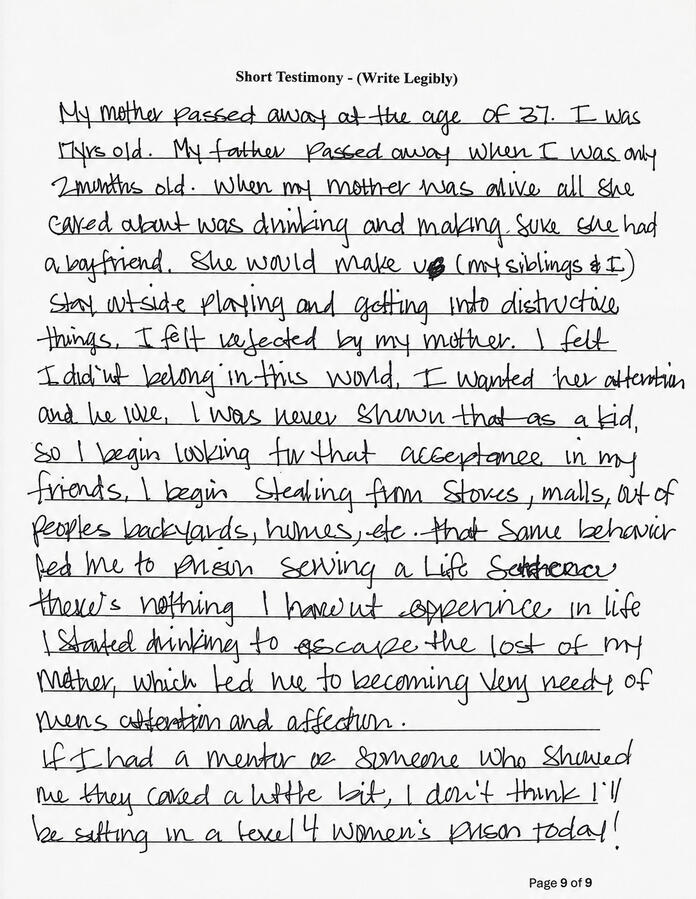 Short Testimony - (Write Legibly)
My mother passed away at the age of 37. I was
17yrs old. My father passed away when I was only
2months old. When my mother was alive all she
cared about was drinking and making sure she had
a boyfriend. She would make us (my siblings & I)
stay outside playing and getting into distructive
things. I felt rejected by my mother. I felt
I did'nt belong in this world. I wanted her attention
and he love. I was never shown that as a kid,
so I begin looking for that acceptance in my
friends, I begin stealing from stores, malls, out of
peoples backyards, homes, etc. that same behavior
led me to prison serving a life sentence
there's nothing I have'nt opperince in life
I started drinking to escape the lost of my
mother, which led me to becoming very needy of
mens attention and affection.
If I had a mentor or someone who showed
me they cared a little bit, I don't think I'll
be sitting in a level 4 women's prison today!
Page 9 of 9